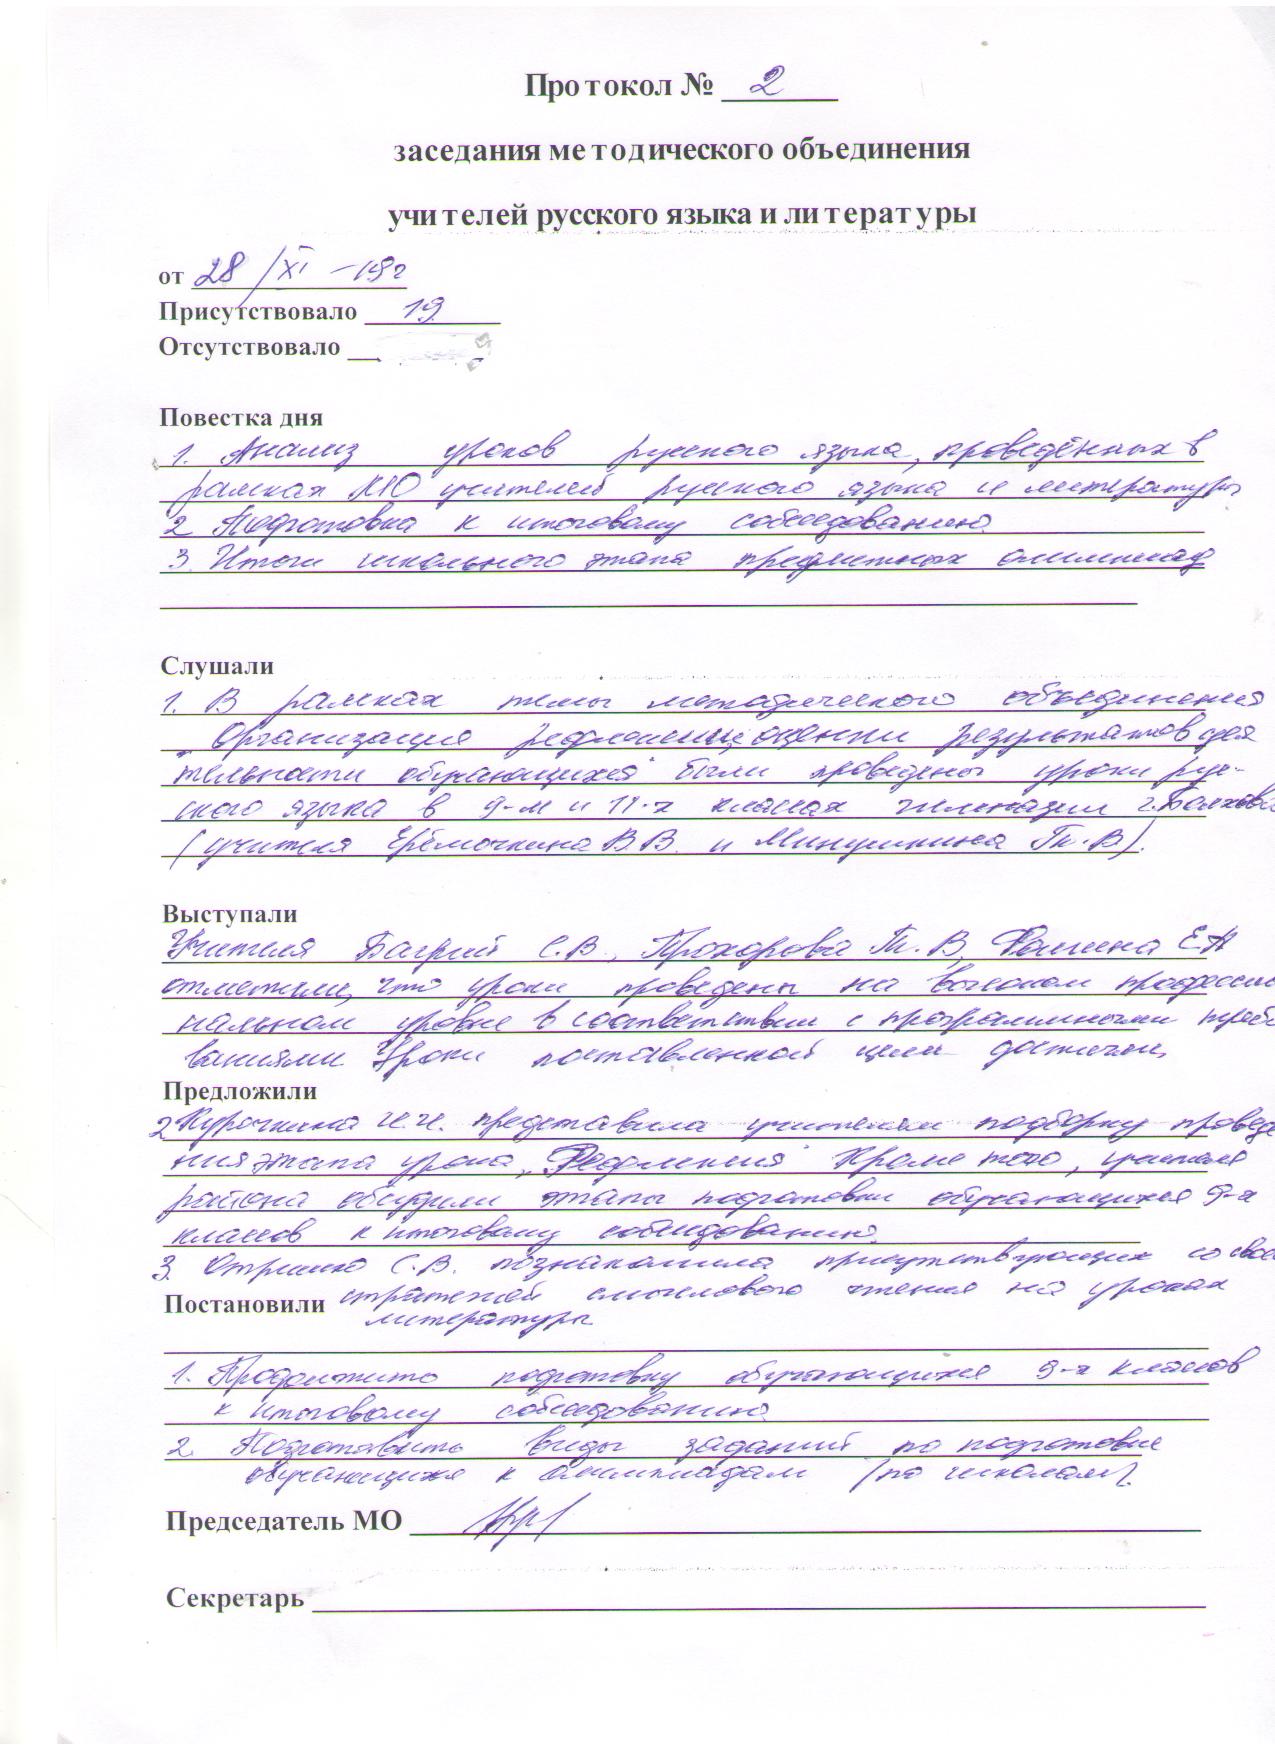 Протокол № 2
заседания методического объединения
учителей русского языка и литературы
от 28/XI-19г
Присутствовало 19
Отсутствовало
Повестка дня
1. Анализ уроков русского языка, проведённых в
рамках МО учителей русского языка и литературы
2 Подготовка к итоговому собеседованию
3. Итоги школьного этапа предметных олимпиад
Слушали
1. В рамках темы методического объединения
"Организация рефлексии, оценки результатов дея
тельности обучающихся" были проведены уроки рус-
ского языка в 9-м и 11-х классах гимназии г. Болхова
(учителя Ерёмочкина В В. и Минушкина Т. В).
Выступали
Учителя Багрий С.В., Прохорова Т. В, Фомина Е.Н
отметили, что уроки проведены на высоком професси
нальном уровне в соответствии с программными треб
ваниями Уроки поставленной цели достигли.
Предложили
2 Курочкина И.И. представила учителям подборку проведе
ния этапа урока "Рефлексия" Кроме того, учителя
района обсудили этапы подготовки обучающихся 9-х
классов к итоговому собеседованию.
3. С.В. познакомила присутствующих со свое
Постановили стратегией смыслового чтения на уроках
литературы
1. Продолжить подготовку обучающихся 9-х классов
к итоговому собеседованию
2. Подготовить виды заданий по подготовке
обучающихся к олимпиадам (по школам).
Председатель МО
Секретарь